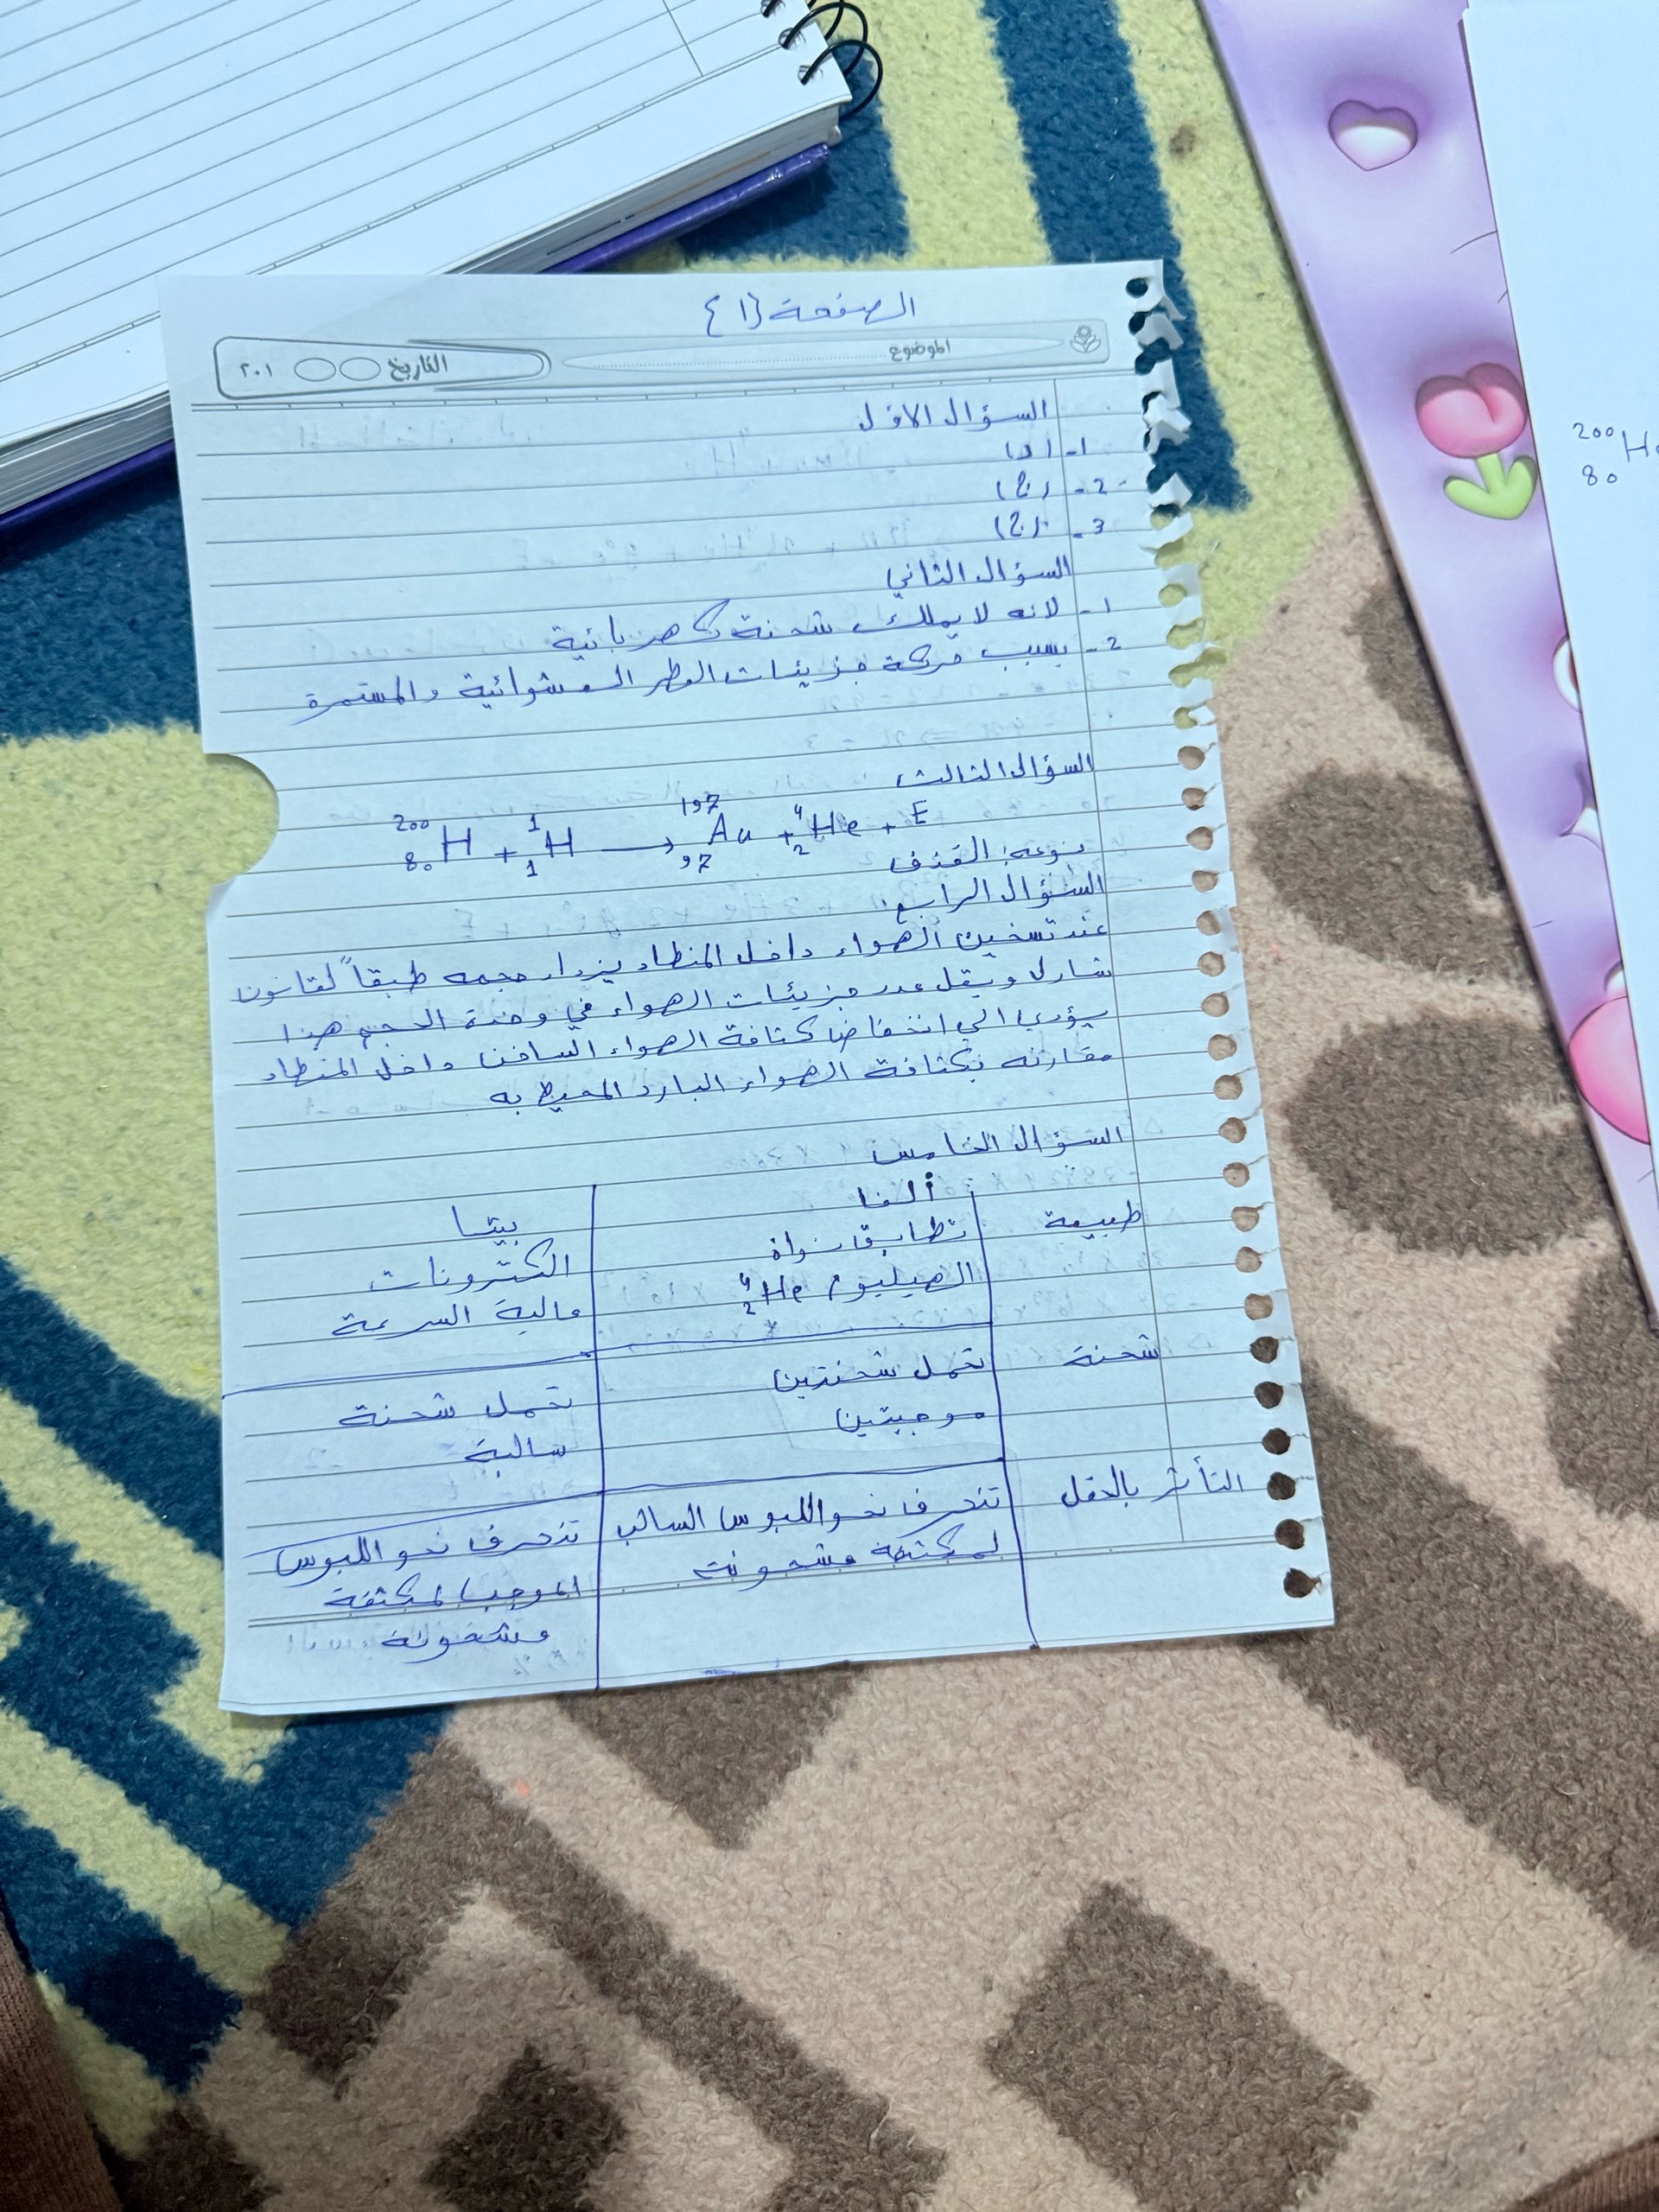 الصفحة {1}
الموضوع
التاريخ ٢٠١
السؤال الاول
1- (د)
2- (ج)
3- (ج)
السؤال الثاني
1- لانه لا يملك شحنة كهربائية
2- بسبب حركة جزيئات العطر العشوائية والمستمرة
السؤال الثالث
²⁰⁰₈₀H + ¹₁H → ¹⁹⁷₉₇Au + ⁴₂He + E
نوعه: القذف
السؤال الرابع:
عند تسخين الهواء داخل المنطاد يزداد حجمه طبقاً لقانون
شارل ويقل عدد جزيئات الهواء في وحدة الحجم هذا
يؤدي الى انخفاض كثافة الهواء الساخن داخل المنطاد
مقارنه بكثافة الهواء البارد المحيط به
السؤال الخامس
ألفا بيتا
طبيعة تطابق نواة الكترونات
الهيليوم ⁴₂He عالية السرعة
شحنة تحمل شحنتين تحمل شحنة
موجبتين سالبة
التأثر بالحقل تنحرف نحو اللبوس السالب تنحرف نحو اللبوس
لمكثفة مشحونة الموجب لمكثفة
مشحونة
²⁰⁰₈₀H